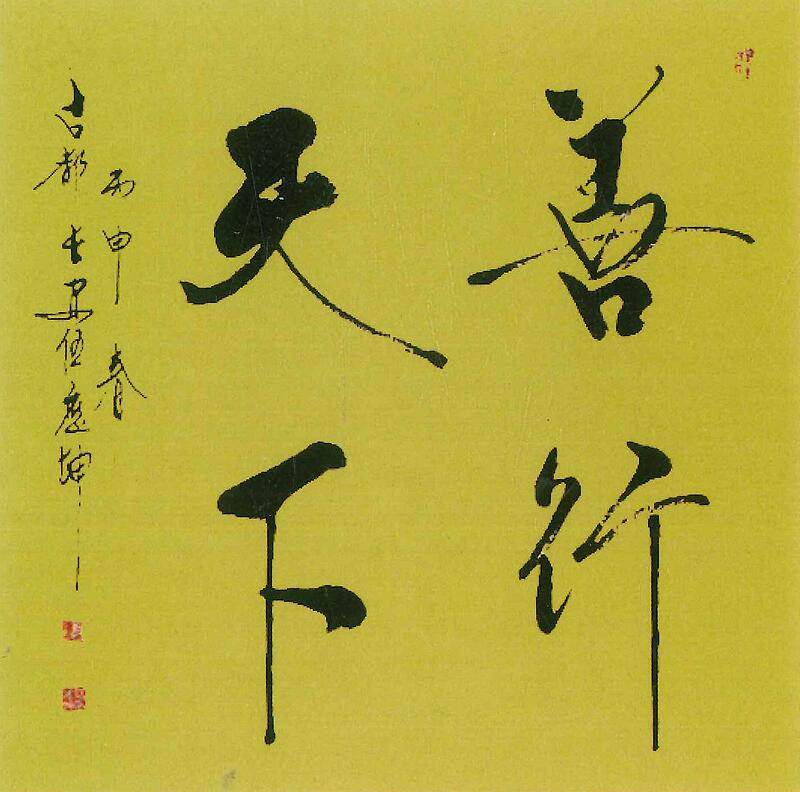 善行
天下
丙申春
古都长安坤